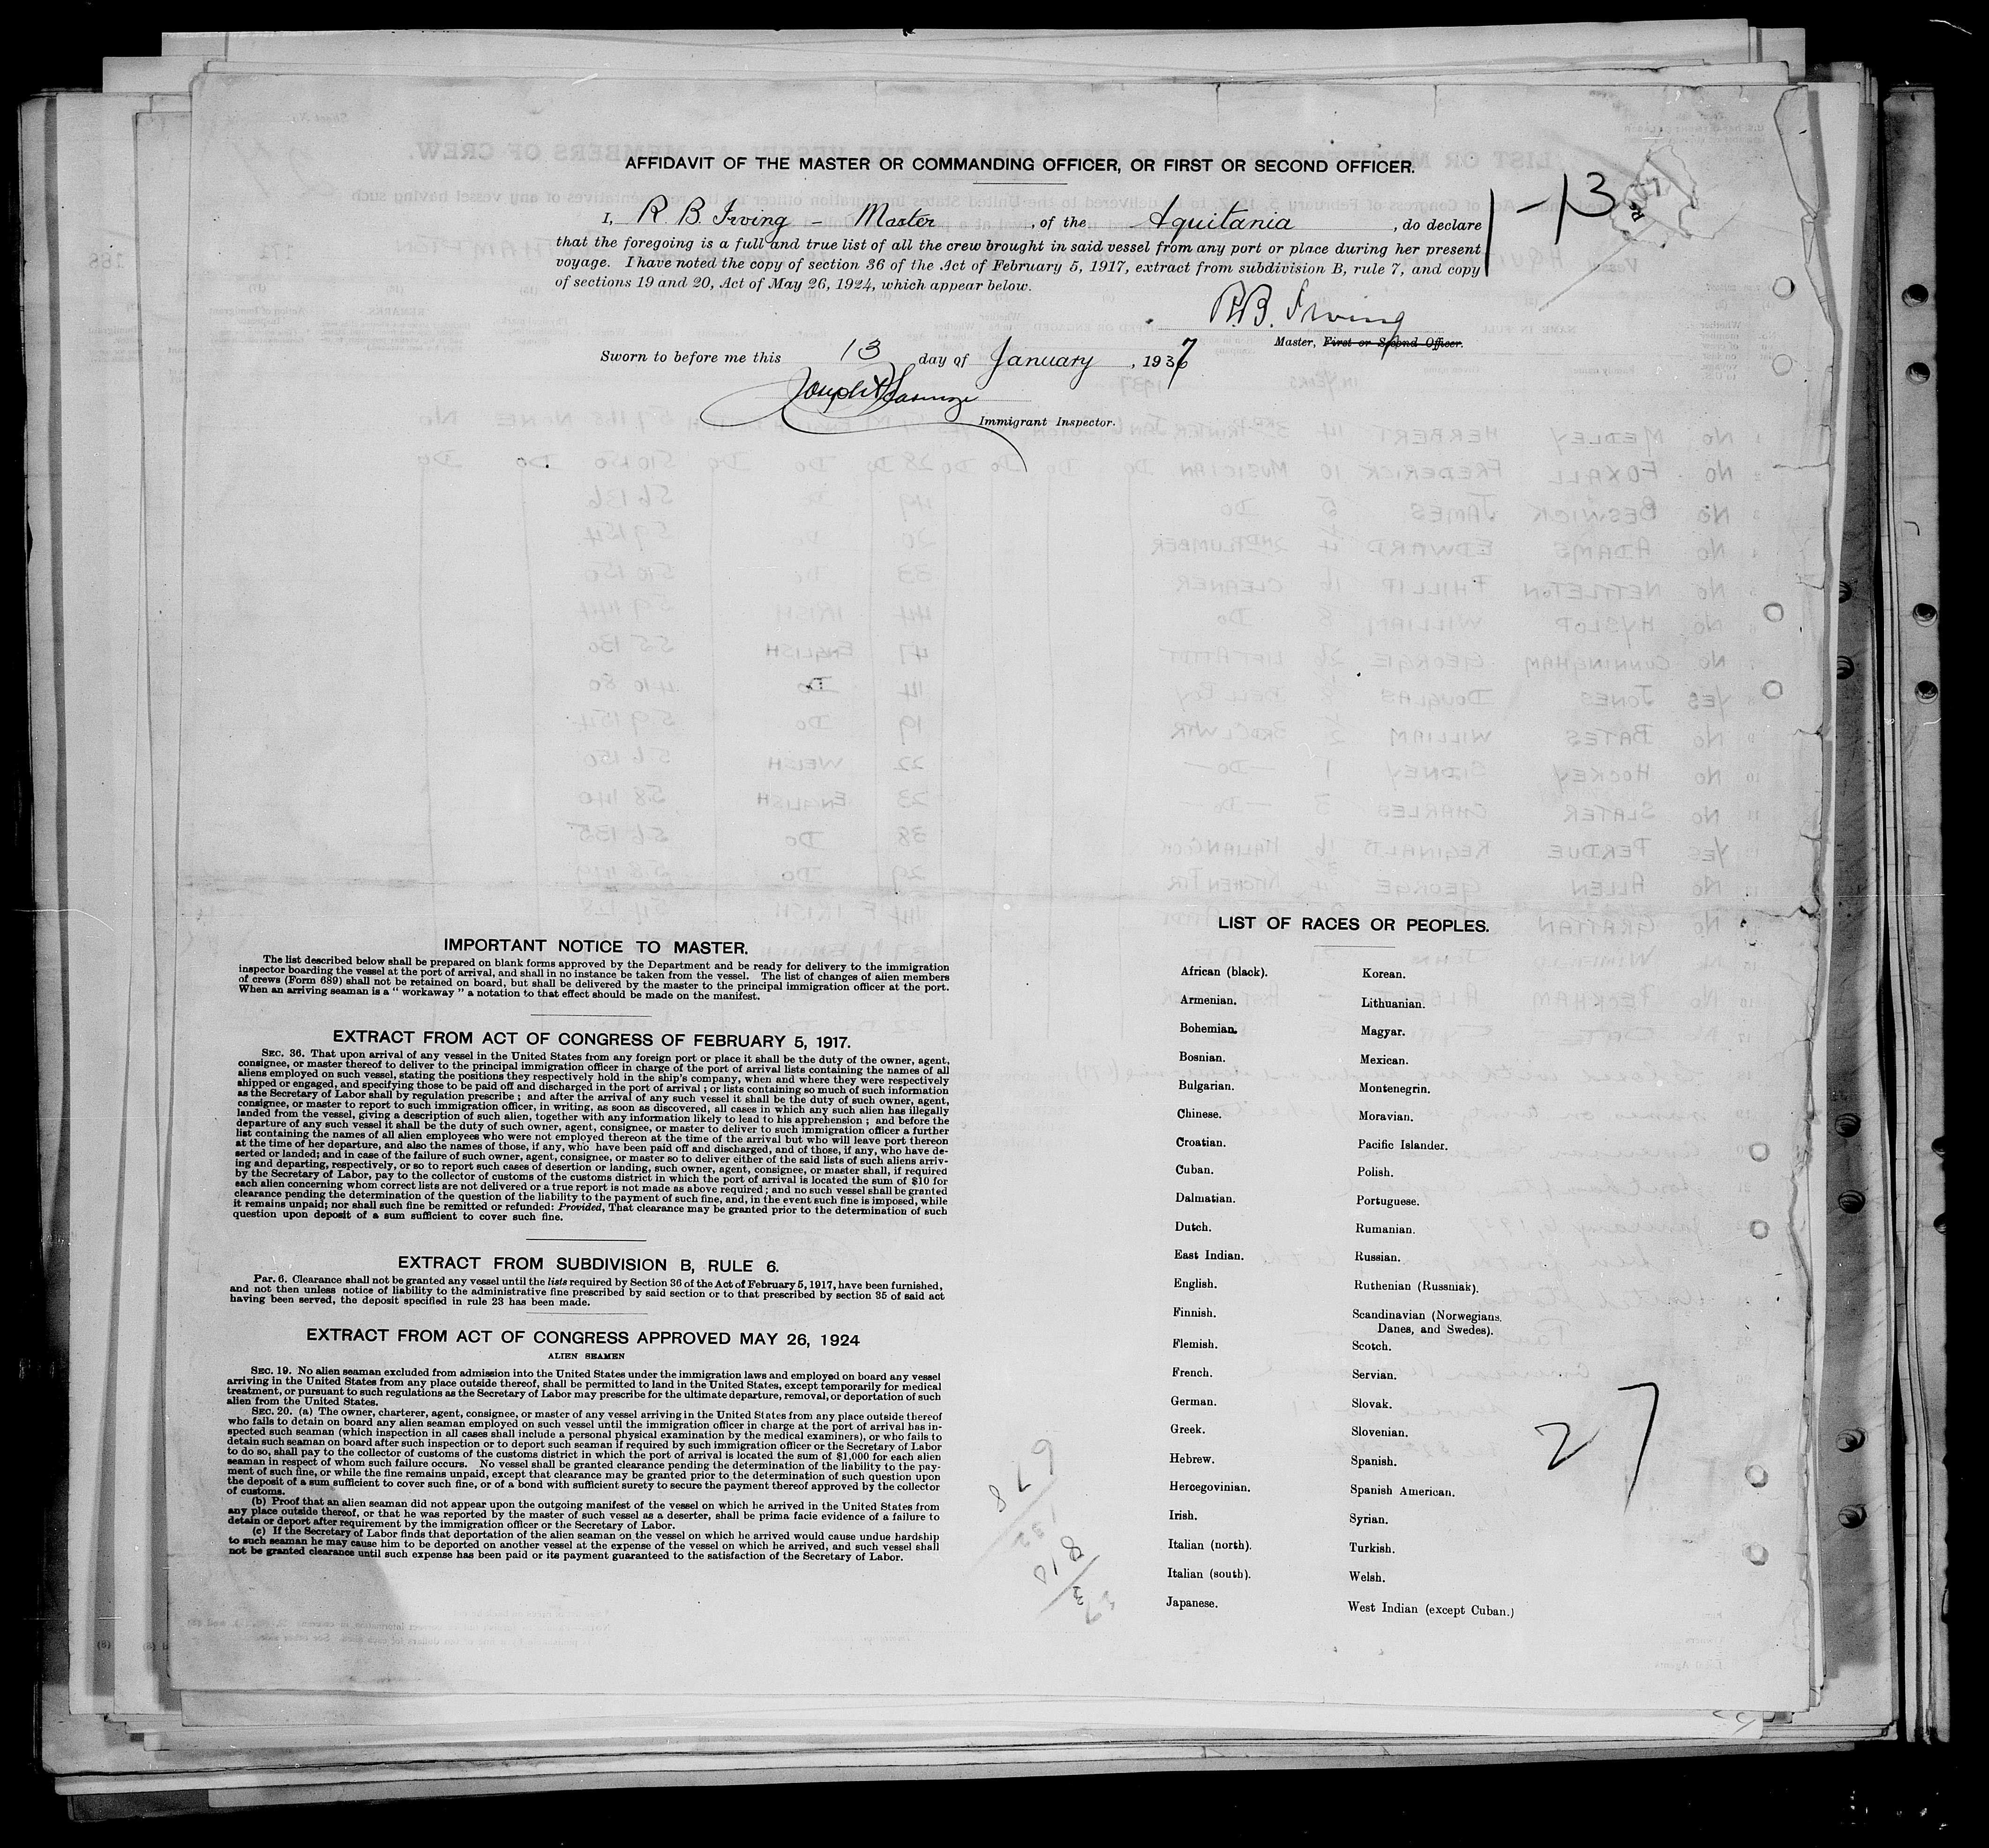 AFFIDAVIT OF THE MASTER OR COMMANDING OFFICER, OR FIRST OR SECOND OFFICER.
1-13
I, R. B. Irving - Master, of the Aquitania, do declare
that the foregoing is a full and true list of all the crew brought in said vessel from any port or place during her present
voyage. I have noted the copy of section 36 of the Act of February 5, 1917, extract from subdivision B, rule 7, and copy
of sections 19 and 20, Act of May 26, 1924, which appear below.
R.B. Irving
Master, First or Second Officer.
Sworn to before me this 13 day of January, 1937
Immigrant Inspector.
IMPORTANT NOTICE TO MASTER.
The list described below shall be prepared on blank forms approved by the Department and be ready for delivery to the immigration
inspector boarding the vessel at the port of arrival, and shall in no instance be taken from the vessel. The list of changes of alien members
of crews (Form 689) shall not be retained on board, but shall be delivered by the master to the principal immigration officer at the port.
When an arriving seaman is a " workaway " a notation to that effect should be made on the manifest.
EXTRACT FROM ACT OF CONGRESS OF FEBRUARY 5, 1917.
SEC. 36. That upon arrival of any vessel in the United States from any foreign port or place it shall be the duty of the owner, agent,
consignee, or master thereof to deliver to the principal immigration officer in charge of the port of arrival lists containing the names of all
aliens employed on such vessel, stating the positions they respectively hold in the ship's company, when and where they were respectively
shipped or engaged, and specifying those to be paid off and discharged in the port of arrival ; or lists containing so much of such information
as the Secretary of Labor shall by regulation prescribe ; and after the arrival of any such vessel it shall be the duty of such owner, agent,
consignee, or master to report to such immigration officer, in writing, as soon as discovered, all cases in which any such alien has illegally
landed from the vessel, giving a description of such alien, together with any information likely to lead to his apprehension ; and before the
departure of any such vessel it shall be the duty of such owner, agent, consignee, or master to deliver to such immigration officer a further
list containing the names of all alien employees who were not employed thereon at the time of the arrival but who will leave port thereon
at the time of her departure, and also the names of those, if any, who have been paid off and discharged, and of those, if any, who have de-
serted or landed; and in case of the failure of such owner, agent, consignee, or master so to deliver either of the said lists of such aliens arriv-
ing and departing, respectively, or so to report such cases of desertion or landing, such owner, agent, consignee, or master shall, if required
by the Secretary of Labor, pay to the collector of customs of the customs district in which the port of arrival is located the sum of $10 for
each alien concerning whom correct lists are not delivered or a true report is not made as above required ; and no such vessel shall be granted
clearance pending the determination of the question of the liability to the payment of such fine, and, in the event such fine is imposed, while
it remains unpaid; nor shall such fine be remitted or refunded: Provided, That clearance may be granted prior to the determination of such
question upon deposit of a sum sufficient to cover such fine.
EXTRACT FROM SUBDIVISION B, RULE 6.
Par. 6. Clearance shall not be granted any vessel until the lists required by Section 36 of the Act of February 5, 1917, have been furnished,
and not then unless notice of liability to the administrative fine prescribed by said section or to that prescribed by section 35 of said act
having been served, the deposit specified in rule 23 has been made.
EXTRACT FROM ACT OF CONGRESS APPROVED MAY 26, 1924
ALIEN SEAMEN
SEC. 19. No alien seaman excluded from admission into the United States under the immigration laws and employed on board any vessel
arriving in the United States from any place outside thereof, shall be permitted to land in the United States, except temporarily for medical
treatment, or pursuant to such regulations as the Secretary of Labor may prescribe for the ultimate departure, removal, or deportation of such
alien from the United States.
SEC. 20. (a) The owner, charterer, agent, consignee, or master of any vessel arriving in the United States from any place outside thereof
who fails to detain on board any alien seaman employed on such vessel until the immigration officer in charge at the port of arrival has in-
spected such seaman (which inspection in all cases shall include a personal physical examination by the medical examiners), or who fails to
detain such seaman on board after such inspection or to deport such seaman if required by such immigration officer or the Secretary of Labor
to do so, shall pay to the collector of customs of the customs district in which the port of arrival is located the sum of $1,000 for each alien
seaman in respect of whom such failure occurs. No vessel shall be granted clearance pending the determination of the liability to the pay-
ment of such fine, or while the fine remains unpaid, except that clearance may be granted prior to the determination of such question upon
the deposit of a sum sufficient to cover such fine, or of a bond with sufficient surety to secure the payment thereof approved by the collector
of customs.
(b) Proof that an alien seaman did not appear upon the outgoing manifest of the vessel on which he arrived in the United States from
any place outside thereof, or that he was reported by the master of such vessel as a deserter, shall be prima facie evidence of a failure to
detain or deport after requirement by the immigration officer or the Secretary of Labor.
(c) If the Secretary of Labor finds that deportation of the alien seaman on the vessel on which he arrived would cause undue hardship
to such seaman he may cause him to be deported on another vessel at the expense of the vessel on which he arrived, and such vessel shall
not be granted clearance until such expense has been paid or its payment guaranteed to the satisfaction of the Secretary of Labor.
LIST OF RACES OR PEOPLES.
African (black).
Armenian.
Bohemian.
Bosnian.
Bulgarian.
Chinese.
Croatian.
Cuban.
Dalmatian.
Dutch.
East Indian.
English.
Finnish.
Flemish.
French.
German.
Greek.
Hebrew.
Hercegovinian.
Irish.
Italian (north).
Italian (south).
Japanese.
Korean.
Lithuanian.
Magyar.
Mexican.
Montenegrin.
Moravian.
Pacific Islander.
Polish.
Portuguese.
Rumanian.
Russian.
Ruthenian (Russniak).
Scandinavian (Norwegians,
Danes, and Swedes).
Scotch.
Servian.
Slovak.
Slovenian.
Spanish.
Spanish American.
Syrian.
Turkish.
Welsh.
West Indian (except Cuban.)
27